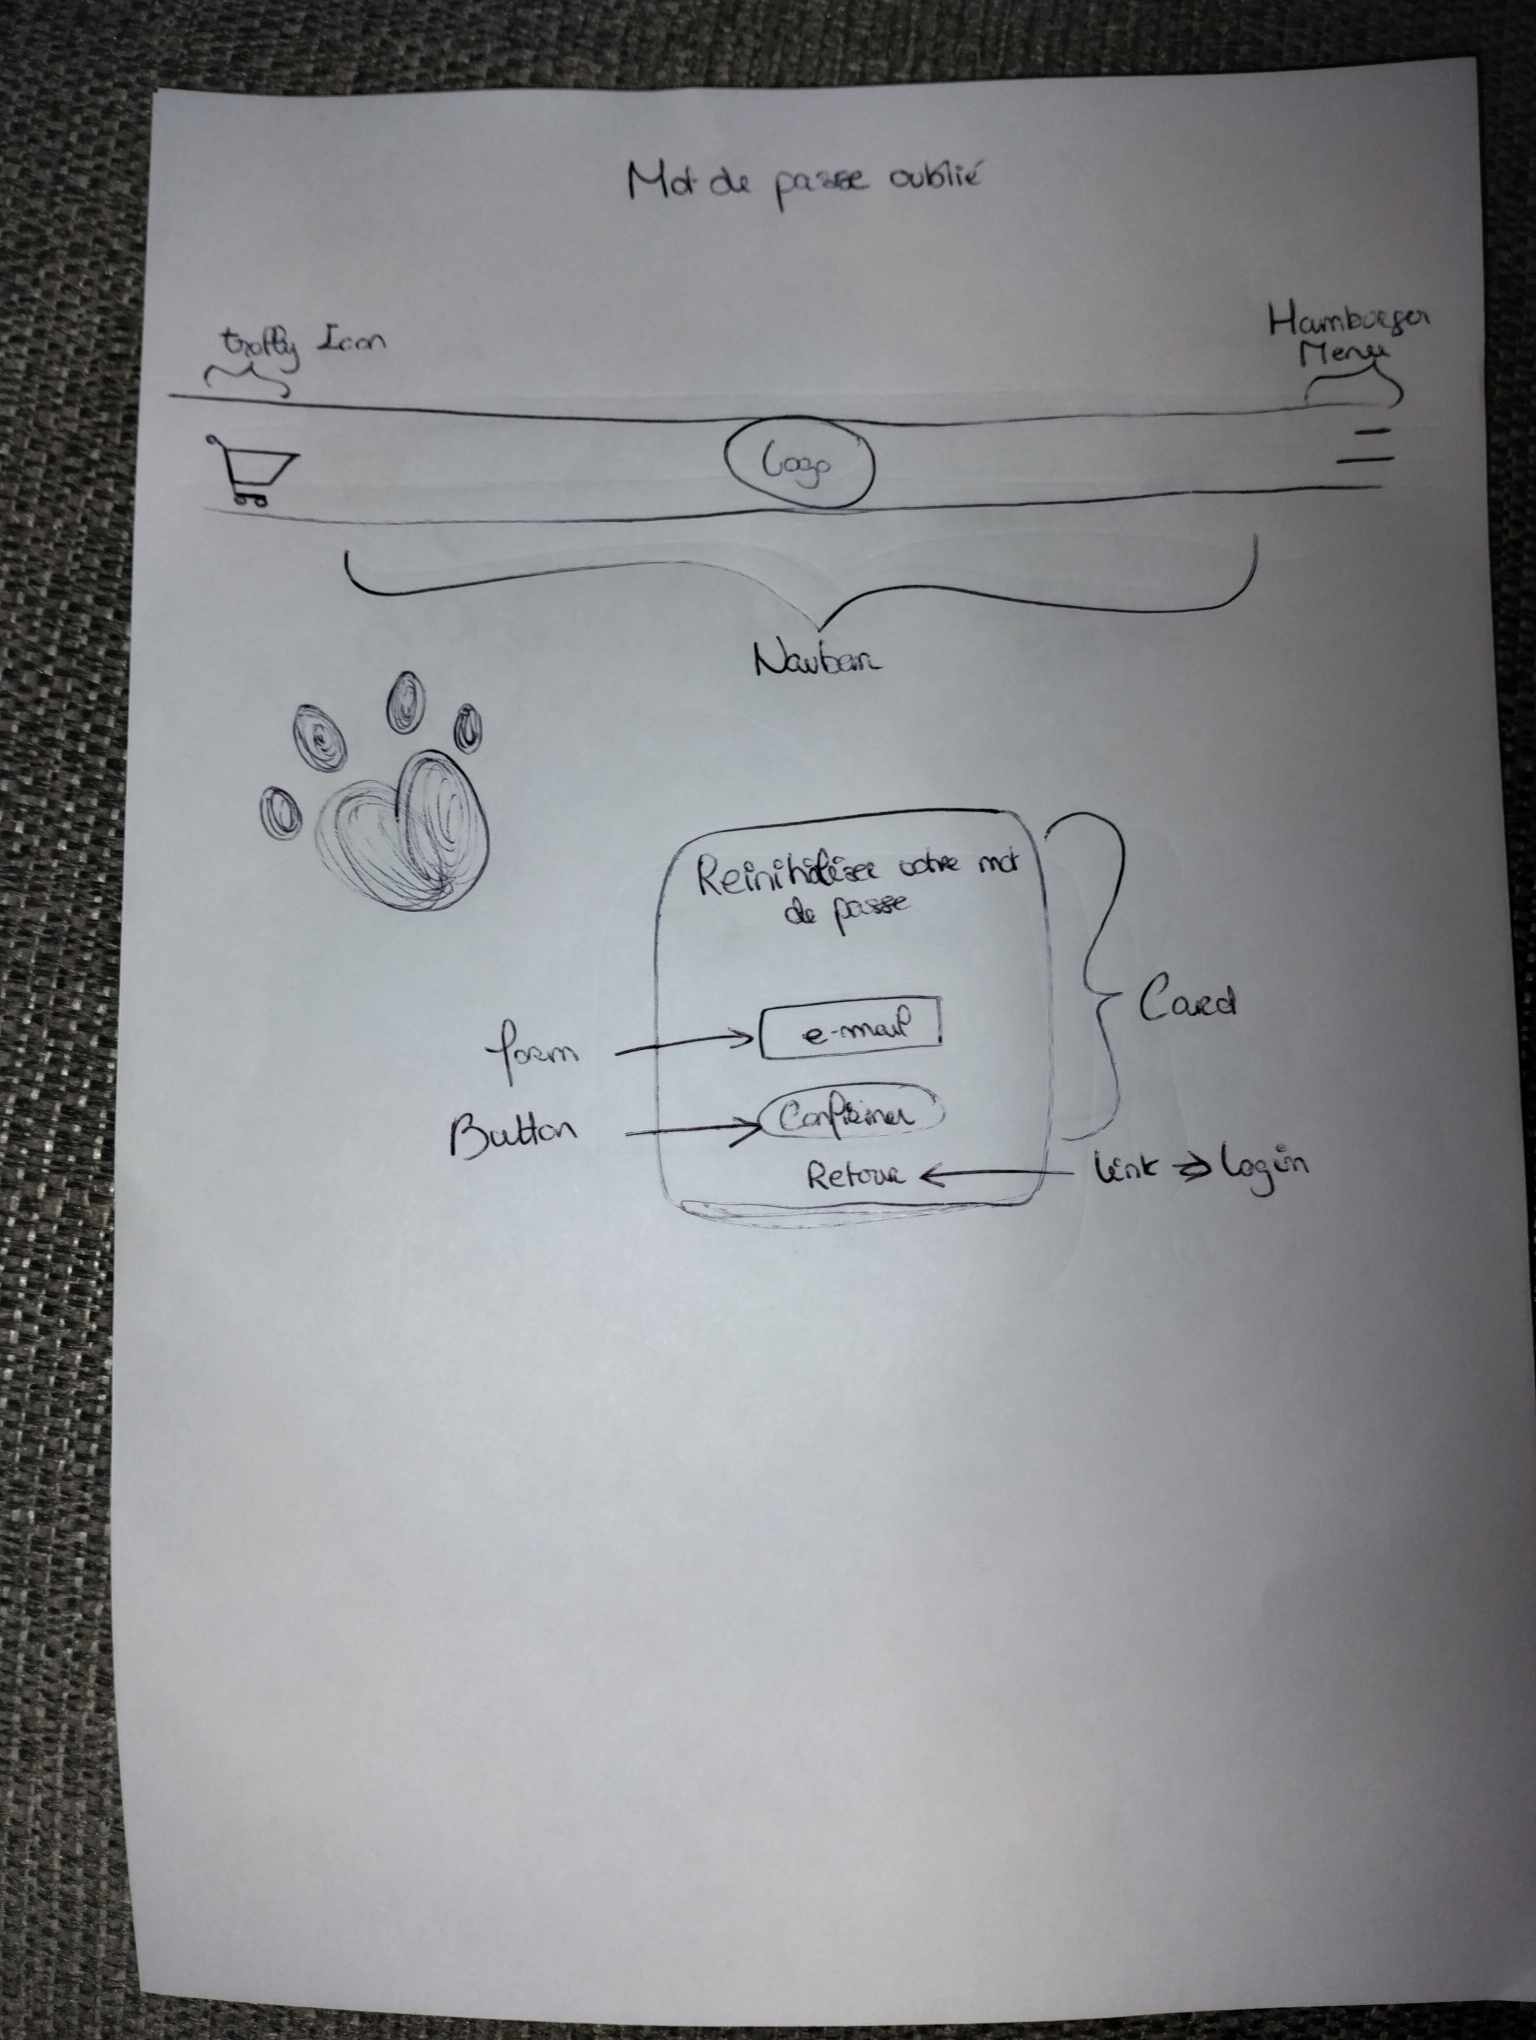 Mot de passe oublié
trolly Icon
Hamburger
Menu
Logo
Navbar
Reinitialiser votre mot
de passe
form
e-mail
Card
Button
Confirmer
Retour
link => login